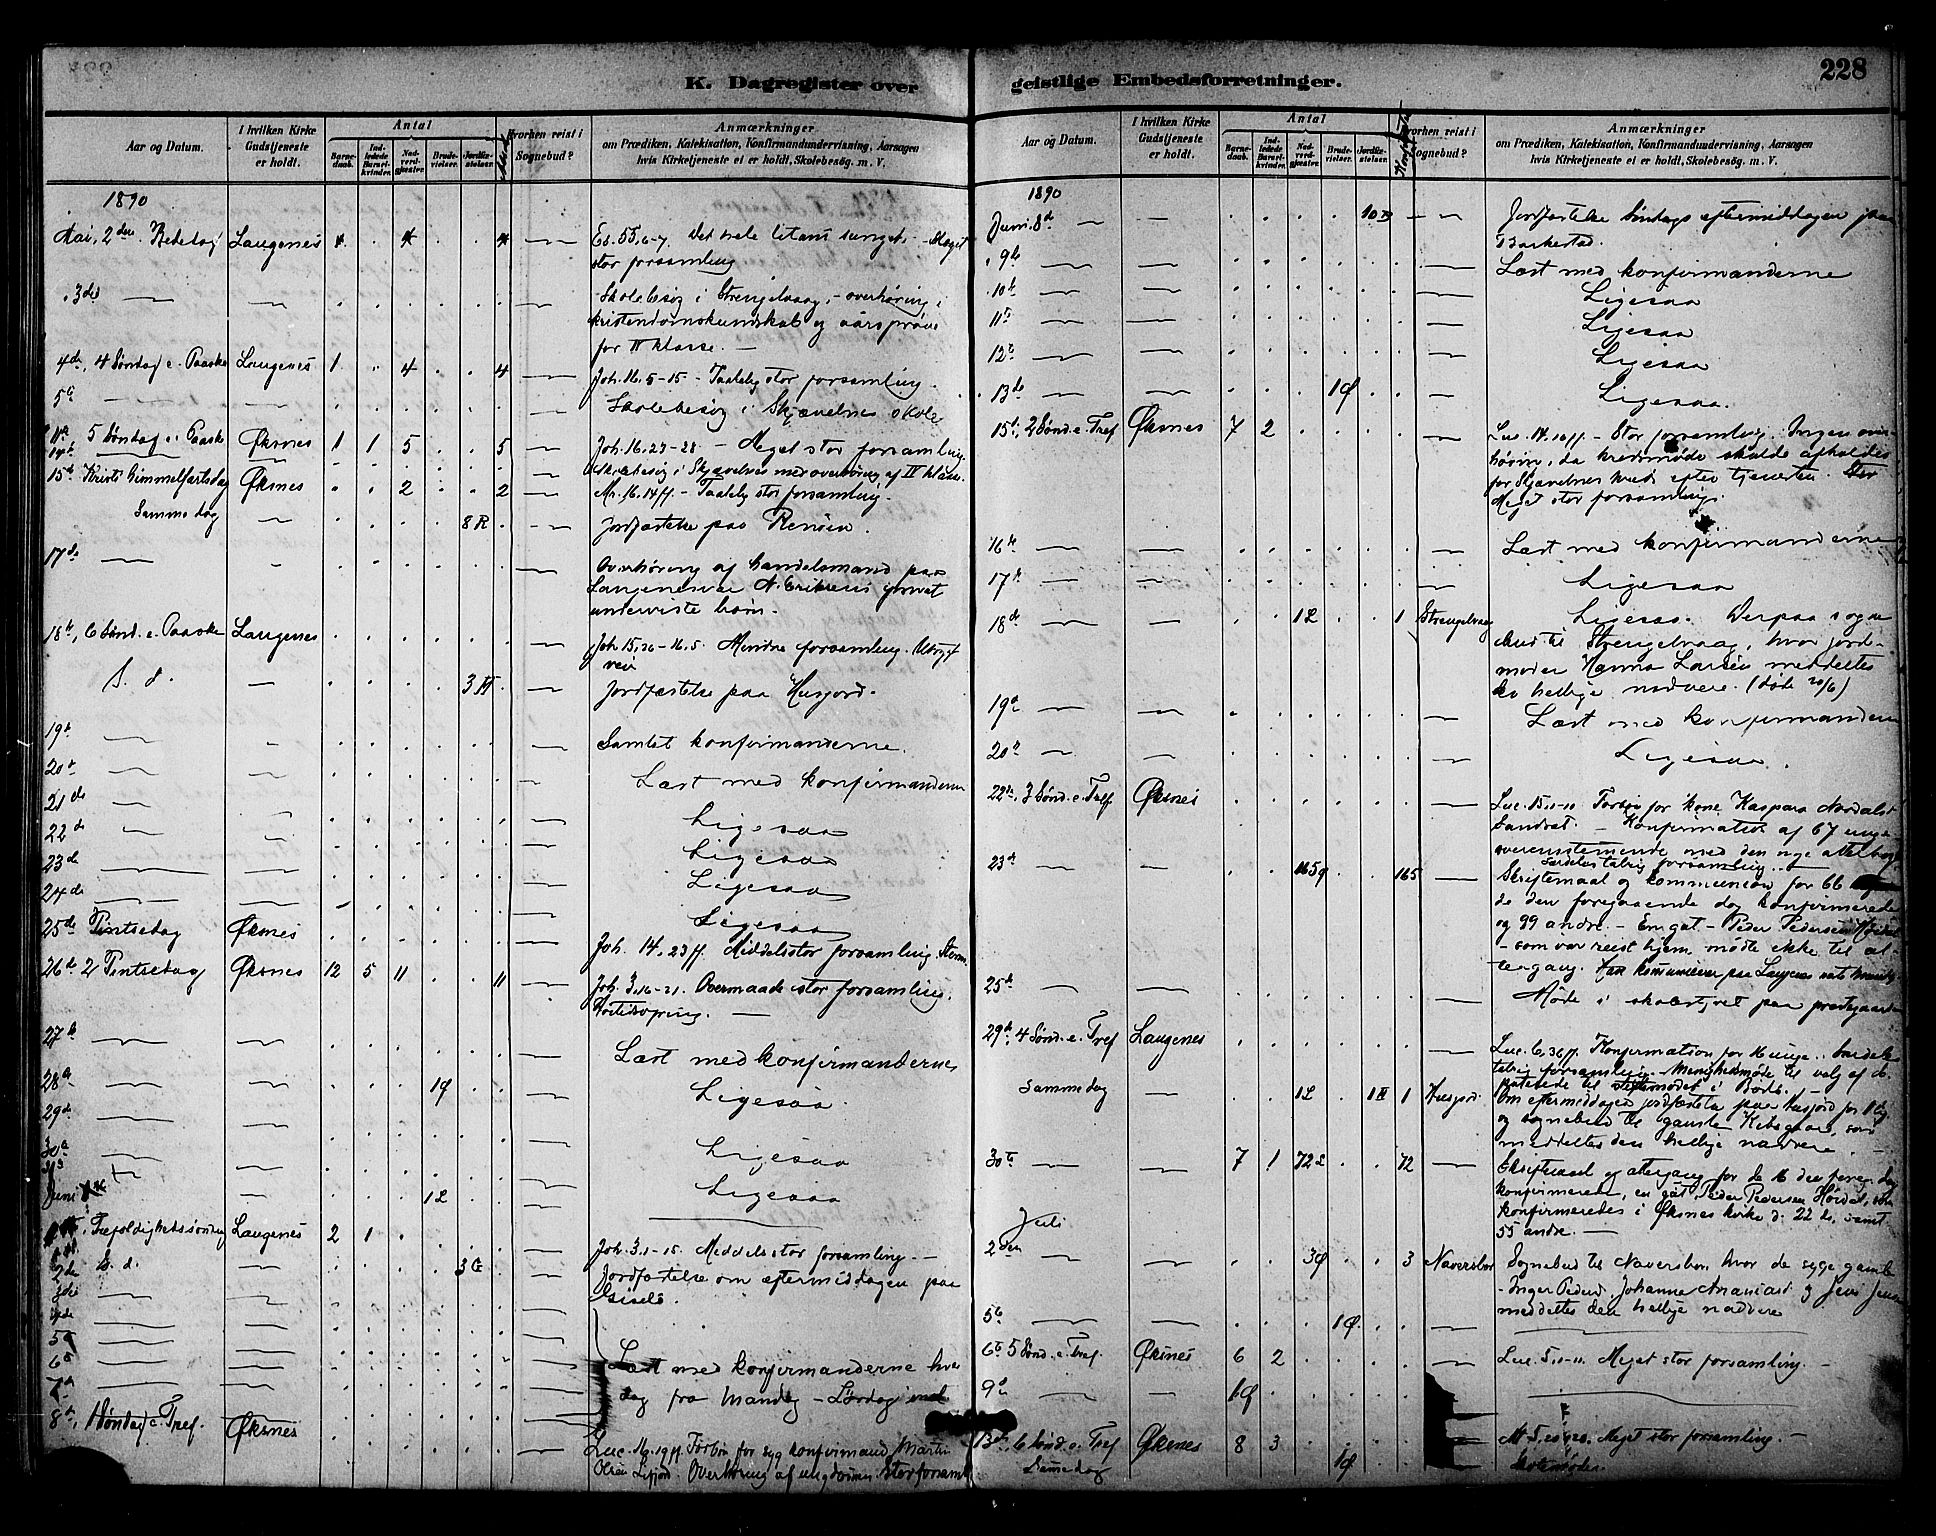 K. Dagregister over
Aar og Datum.
I hvilken Kirke Gudstjeneste er holdt.
Antal
Barne-daab.
Ind-ledede Barsel-kvinder.
Nad-verd-gjæster.
Brude-vielser.
Jordfæ-stelser.
Hvorhen reist i Sognebud?
Anmærkninger
om Prædiken, Katekisation, Konfirmandundervisning, Aarsagen
hvis Kirketjeneste ei er holdt, Skolebesøg, m. V.
1890
Mai, 2den Bededag Langenes 4 4 Es. 55, 6-7. Det hele litani sunget. - Meget
stor forsamling
3de Skolebesøg i Strengelvaag, - overhøring i
kristendomskundskab og aarsprøve
for II klasse. -
4de, 4 Søndag e. Paaske Langenes 1 4 4 Joh. 16. 5-15 - Taalelig stor forsamling.
5te Skolebesøg i Skjævelnes skole
11te 5 Søndag e. Paaske Øksnes 1 1 5 5 Joh. 16. 23-28 - Meget stor forsamling.
14de Skolebesøg i Skjævelnes med overhøring af II klasse.
15de Kristi himmelfartsdag Øksnes 2 2 Mr. 16. 14ff - Taalelig stor forsamling.
Samme dag 8 R Jordfæstelse paa Renøen.
17de Overhøring af handelsmand paa
Langenesvær N. Eriksens privat
underviste børn.
18de, 6 Sønd. e. Paaske Langenes Joh. 15, 26-16. 5. Mindre forsamling.
veir
S. d. 3 H Jordfæstelse paa Husjord.
19de Samlet konfirmanderne.
20de Læst med konfirmanderne
21de Ligesaa
22de Ligesaa
23de Ligesaa
24de Ligesaa
25de Pintsedag Øksnes Joh. 14, 23ff. Middelsstor forsamling. Storm
26de 2 Pintsedag Øksnes 12 5 11 11 Joh. 3. 16-21. Overmaade stor forsamling.
27de Læst med konfirmanderne
28de 1Ø Ligesaa.
29de
30te Ligesaa
Juni 1L Ligesaa
Trefoldighedssøndag Langenes 2 1 Joh. 3. 1-15. Middelsstor forsamling. -
S. d. 3 G Jordfæstelse om eftermiddagen paa
2de Gisslø.
3die
4de
5te
6te Læst med konfirmanderne hver
7de dag fra Mandag - Lørdag
8de, 1 Søndag e. Tref. Øksnes Luc. 16, 19ff. Forbøn for syg konfirmand Martin
Olsen Overhøring af ungdommen. Stor forsaml.
geistlige Embedsforretninger.
228
Aar og Datum.
I hvilken Kirke Gudstjeneste er holdt.
Antal
Barne-daab.
Ind-ledede Barsel-kvinder.
Nad-verd-gjæster.
Brude-vielser.
Jordfæ-stelser.
Hvorhen reist i Sognebud?
Anmærkninger
om Prædiken, Katekisation, Konfirmandundervisning, Aarsagen
hvis Kirketjeneste ei er holdt, Skolebesøg, m. V.
1890
Juni 8de 10 B Jordfæstelse Søndags eftermiddagen paa
Barkestad.
9de Læst med konfirmanderne
10de Ligesaa
11te Ligesaa
12te Ligesaa
13de 1Ø Ligesaa.
15de, 2 Sønd. e. Tref Øksnes 7 2 Luc. 14. 16ff. - Stor forsamling. Ingen over-
høring, da kredsmøde skulde afholdes
for Skjævelnes kreds efter tjenesten.
Meget stor forsamling.
16de Læst med konfirmanderne
17de Ligesaa
18de 1L 1 Strengelvaag Ligesaa. Derpaa sogne
bud til Strengelvaag, hvor jord-
moder Hanna Larsen meddeltes
den hellige nadvere. (død 20/6)
19de Læst med konfirmanderne
20de Ligesaa.
22de, 3 Sønd. e. Tref. Øksnes Luc. 15, 1-10 Forbøn for kone Kaspara Nordal
Sandset. - Konfirmation af 67 unge
overensstemmende med den nye alterbog
Særdeles talrig forsamling. -
23de 165Ø 165 Skriftemaal og kommunion for 66 af
de den foregaaende dag konfirmerede
og 99 andre. - En gut - Peder Pedersen
- som var reist hjem, mødte ikke til al-
tergang. Han kommunicer. paa Langenes
25de Møde i skolestyret paa prestegaarden
29de, 4 Sønd. e. Tref Langenes Luc. 6, 36ff. Konfirmation for 16 unge. Særdeles
talrig forsamling. - Menighedsmøde til valg af de-
puterede til stiftsmødet i Bodø. -
Samme dag 1L 1H 1 Husjord. Om eftermiddagen jordfæstelse paa Husjord for
og sognebud til gamle som
meddeltes den hellige nadvere. -
30te 7 1 72L 72 Skriftemaal og altergang for de 16 den foreg. dag
konfirmerede, en gut Peder Pedersen Hørdal, som
konfirmeredes i Øksnes kirke d. 22 ds. samt
55 andre. -
Juli
2den 3Ø 3 Naversbor Sognebud til Naversbor, hvor de syge gamle
- Inger Peders., Johanna og Jens Jensen
meddeltes den hellige nadvere
5te 1Ø
6te 5 Sønd. e. Tref. Øksnes 6 2 Luc. 5, 1-11. Meget stor forsamling. -
9de 1Ø
13de, 6 Sønd. e. Tref Øksnes 8 3 Mt. 5, 20 Meget stor forsamling. -
Samme dag 1Ø